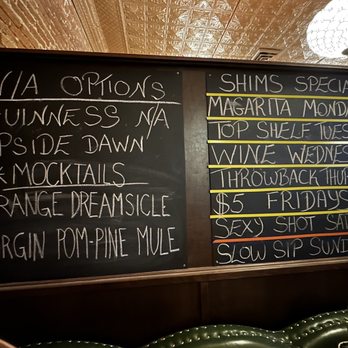 /A OPTIONS
UINNESS N/A
PSIDE DAWN
* MOCKTAILS
RANGE DREAMSICLE
IRGIN POM-PINE MULE
SHIMS SPECIA
MAGARITA MONDA
TOP SHELF TUES
WINE WEDNES
THROWBACK THUR
$5 FRIDAYS
SEXY SHOT SAT
SLOW SIP SUND